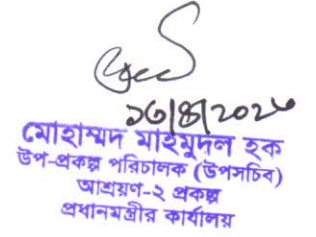 মোহাম্মদ মাহমুদল হক
উপ-প্রকল্প পরিচালক (উপসচিব)
আশ্রয়ণ-২ প্রকল্প
প্রধানমন্ত্রীর কার্যালয়